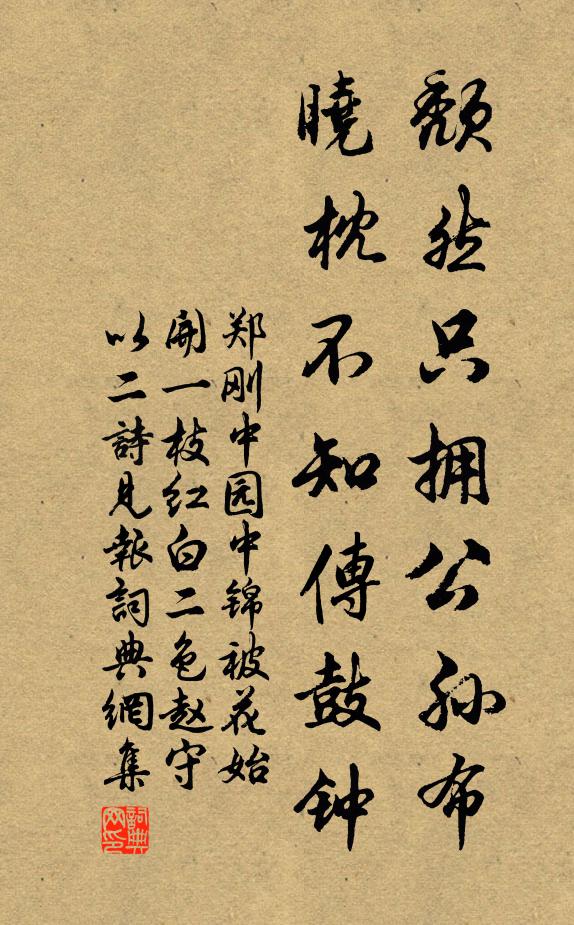 颓然只拥公孙布
曉枕不知傳鼓钟
郑刚中园中锦被花始
開一枝红白二色赵守
以二詩見報詞典網集
詞典网印